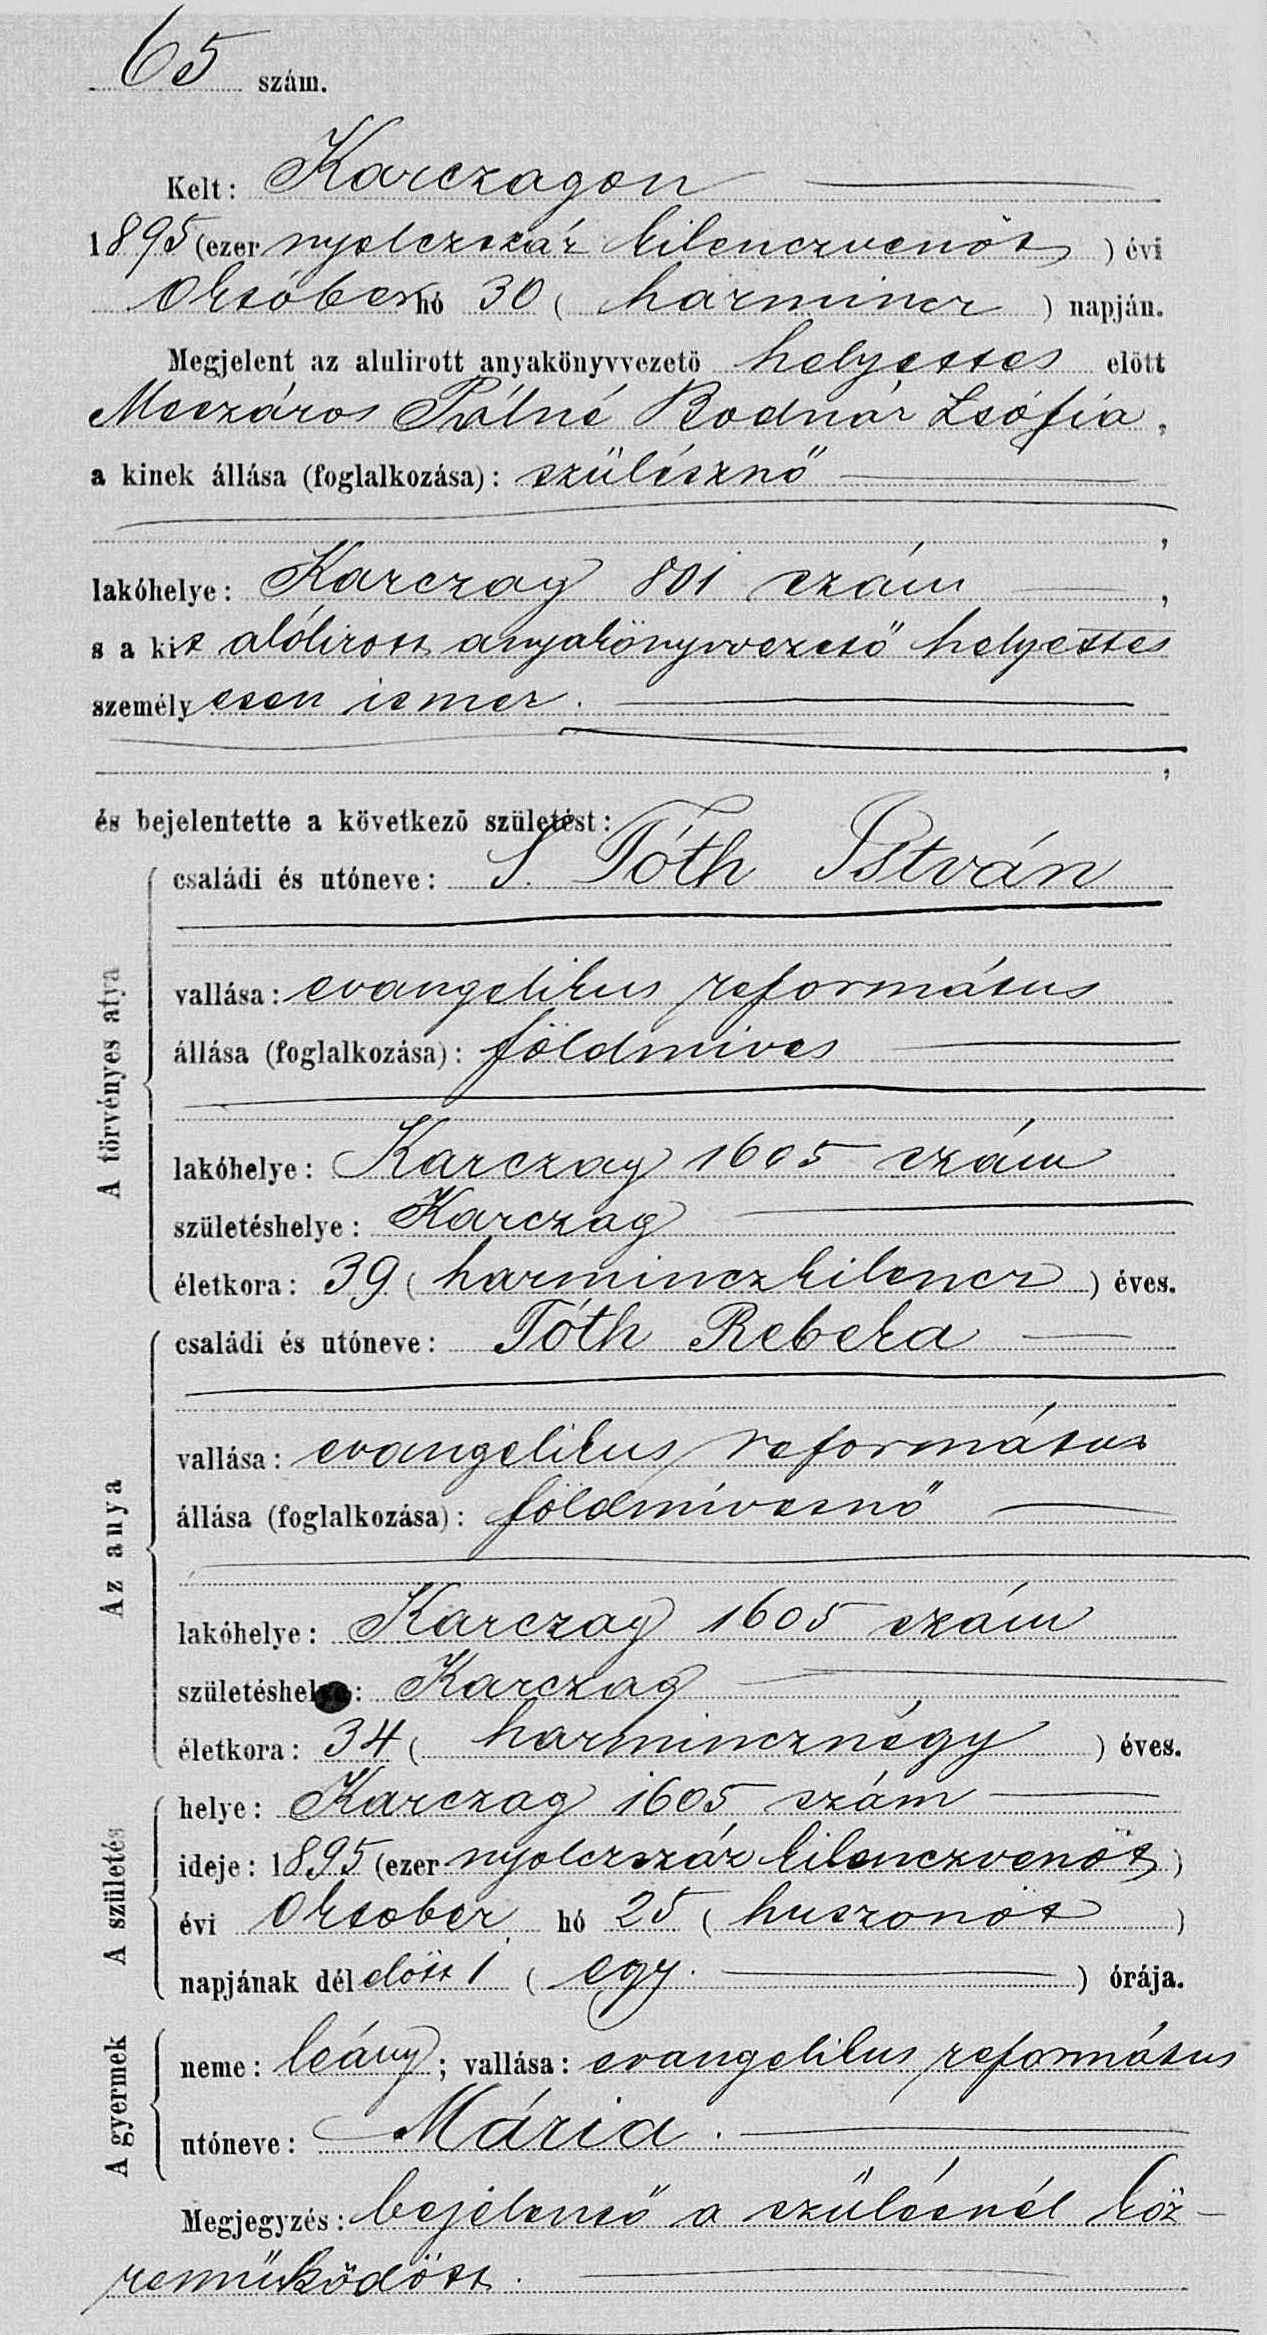 65 szám.
Kelt: Karczagon
1895 (ezer nyolczszáz kilenczvenöt) évi
Október hó 30 (harmincz) napján.
Megjelent az alulirott anyakönyvvezetö helyettes elött
Meszáros Pálné Bodnár Zsófia,
a kinek állása (foglalkozása): szülésznő
,
lakóhelye: Karczag 801 szám,
s a kit alólirott anyakönyvvezető helyettes
személyesen ismer.
,
és bejelentette a következö születést:
A törvényes atya
családi és utóneve: S. Tóth István
vallása: evangelikus református
állása (foglalkozása): földmives
lakóhelye: Karczag 1605 szám
születéshelye: Karczag
életkora: 39 (harminczkilencz) éves.
Az anya
családi és utóneve: Tóth Rebeka
vallása: evangelikus református
állása (foglalkozása): földmivesnő
lakóhelye: Karczag 1605 szám
születéshelye: Karczag
életkora: 34 (harmincznégy) éves.
A születés
helye: Karczag 1605 szám
ideje: 1895 (ezer nyolczszáz kilenczvenöt)
évi Oktober hó 25 (huszonöt)
napjának délelőtt 1 (egy.) órája.
A gyermek
neme: leány; vallása: evangelikus református
utóneve: Mária.
Megjegyzés: bejelentő a szülésnél köz-
remüködött.